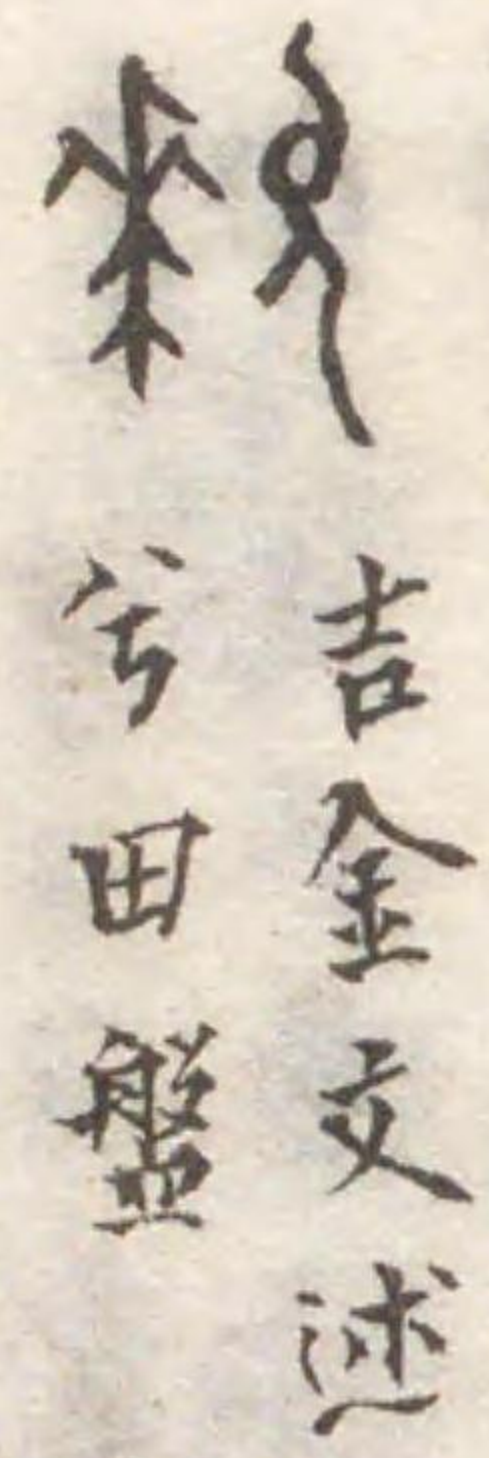 吉金文述
兮田盤